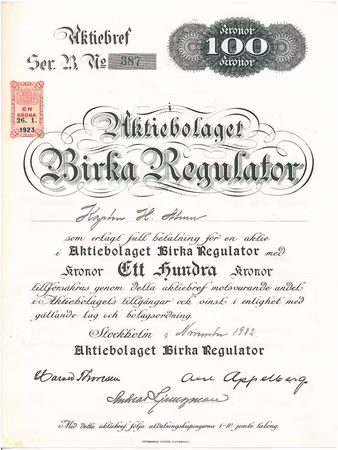 Aktiebref
Ser. B. No 387
Kronor
100
Kronor
EN
KRONA
26. 1.
1923
i
Aktiebolaget
Birka Regulator
H.
som erlagt full betalning för en aktie
i Aktiebolaget Birka Regulator med
Kronor Ett Hundra Kronor
tillförsäkras genom detta aktiebref motsvarande andel
i Aktiebolagets tillgångar och vinst i enlighet med
gällande lag och bolagsordning.
Stockholm i November 1922
Aktiebolaget Birka Regulator
Harald
Axel Appelberg
Andreas Ljungman
Med detta aktiebref följa utdelningskuponger 1-10 jemte talong.